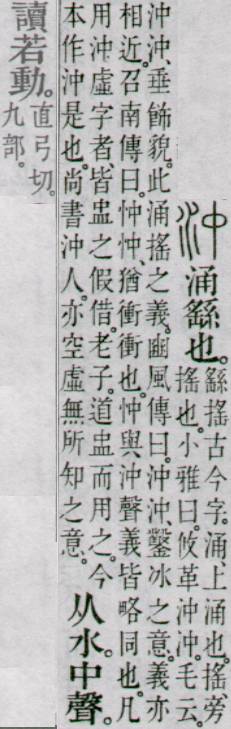 沖涌繇也。
繇搖古今字。涌、上涌也。搖、旁
搖也。小雅曰。攸革沖沖。毛云。
沖沖、垂飾貌。此涌搖之義。豳風傳曰。沖沖、鑿冰之意。義亦
相近。召南傳曰。忡忡、猶衝衝也。忡與沖聲義皆略同也。凡
用沖虛字者皆盅之假借。老子。道盅而用之。今
本作沖是也。尚書沖人。亦空虛無所知之意。
从水。中聲。
讀若動。
直弓切。
九部。